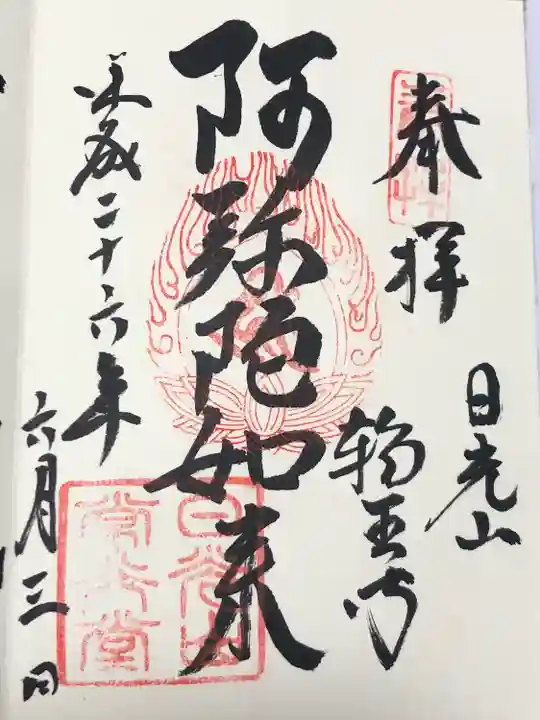 奉拝
日光山
輪王寺
阿弥陀如来
平成二十六年
六月三日
日光山
常行堂